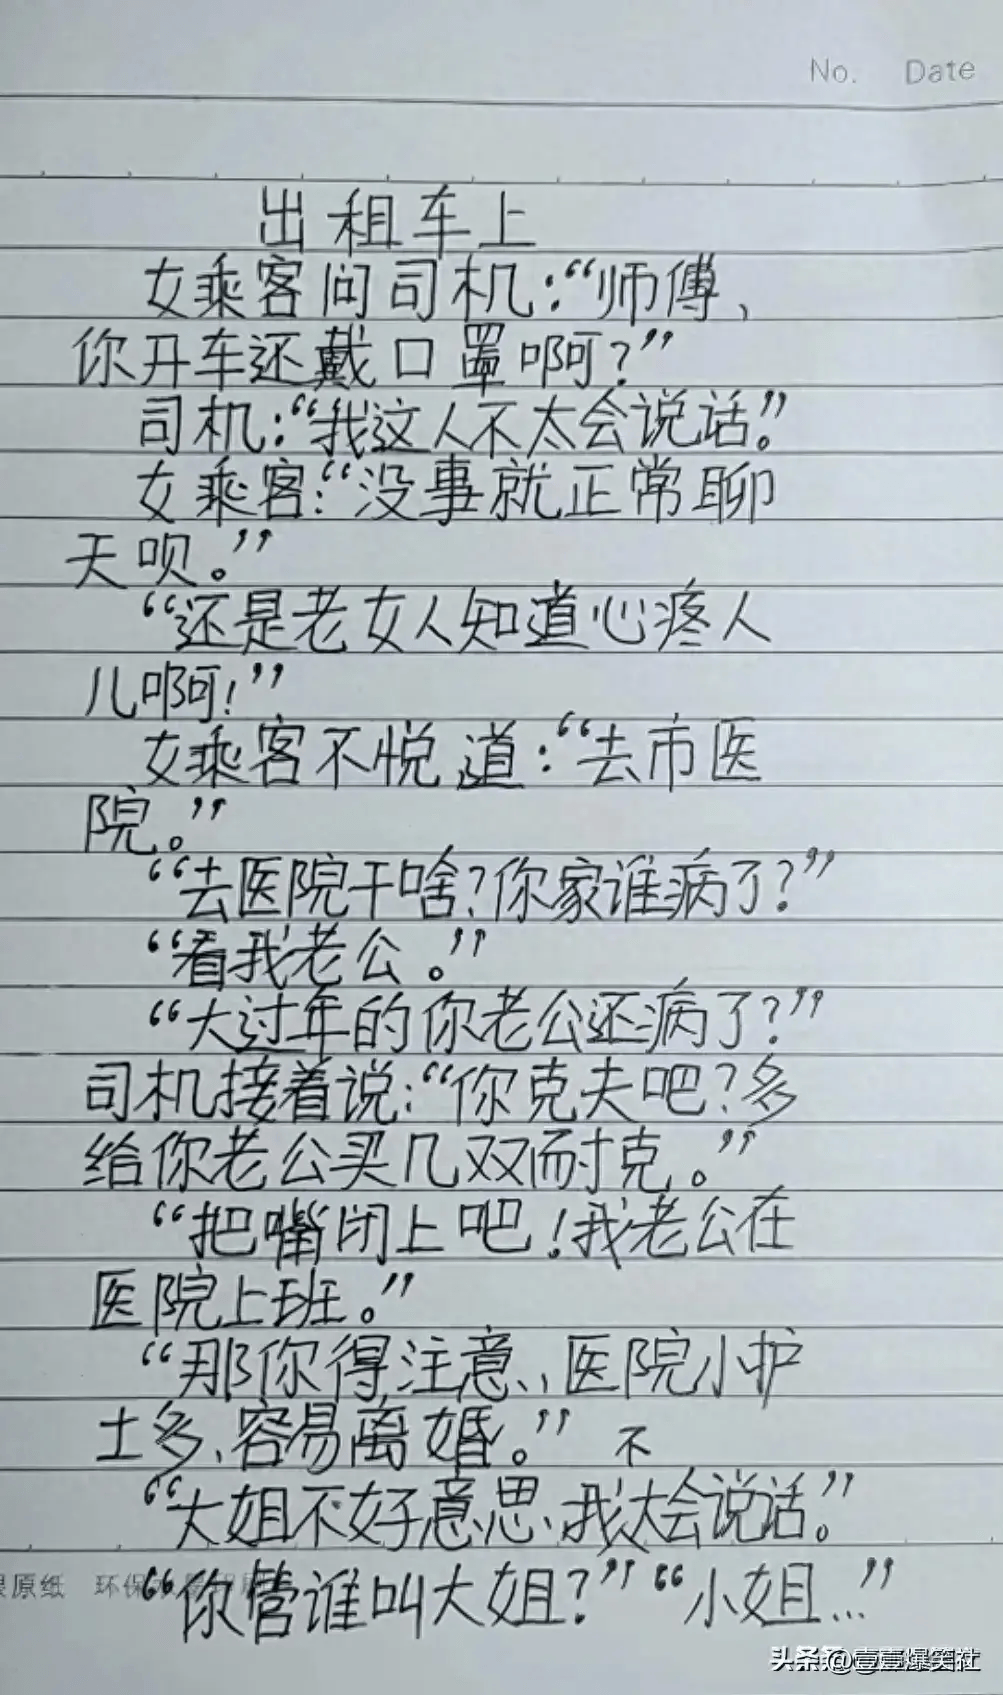 No. Date
出租车上
女乘客问司机:“师傅、
你开车还戴口罩啊?”
司机:“我这人不太会说话。”
女乘客:“没事就正常聊
天呗。”
“还是老女人知道心疼人
儿啊!”
女乘客不悦道:“去市医
院。”
“去医院干啥?你家谁病了?”
“看我老公。”
“大过年的你老公还病了?”
司机接着说:“你克夫吧?多
给你老公买几双耐克。”
“把嘴闭上吧!我老公在
医院上班。”
“那你得注意、,医院小护
士多、容易离婚。”
不
“大姐不好意思、我太会说话。”
“你管谁叫大姐?”“小姐...”
原纸 环保
头条 @壹壹爆笑社